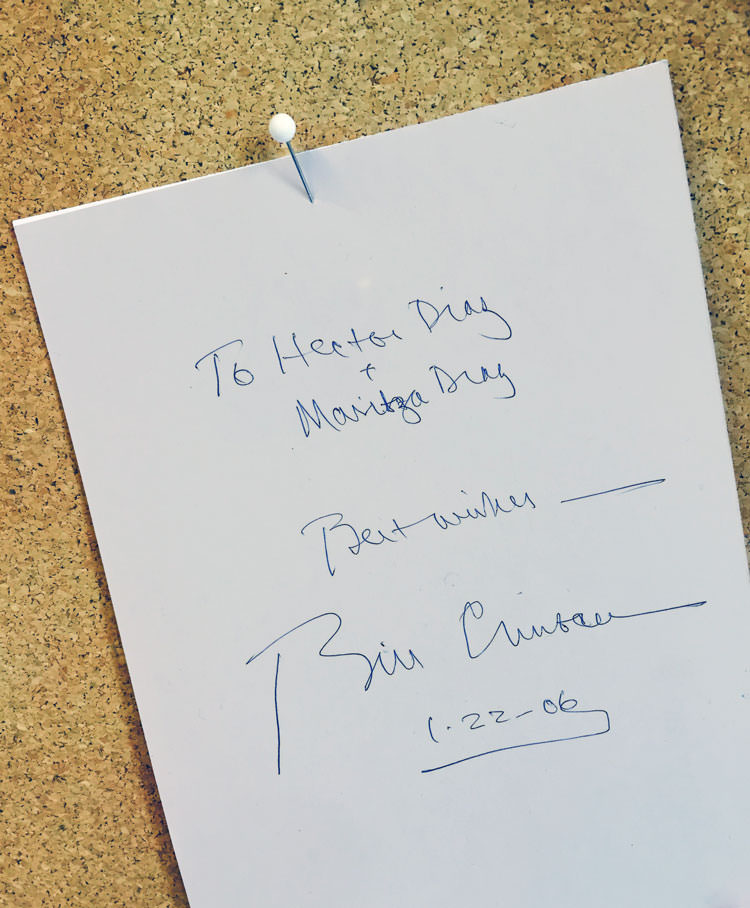 To Hector Diaz
+
Maritza Diaz
Best wishes —
Bill Clinton
1-22-06